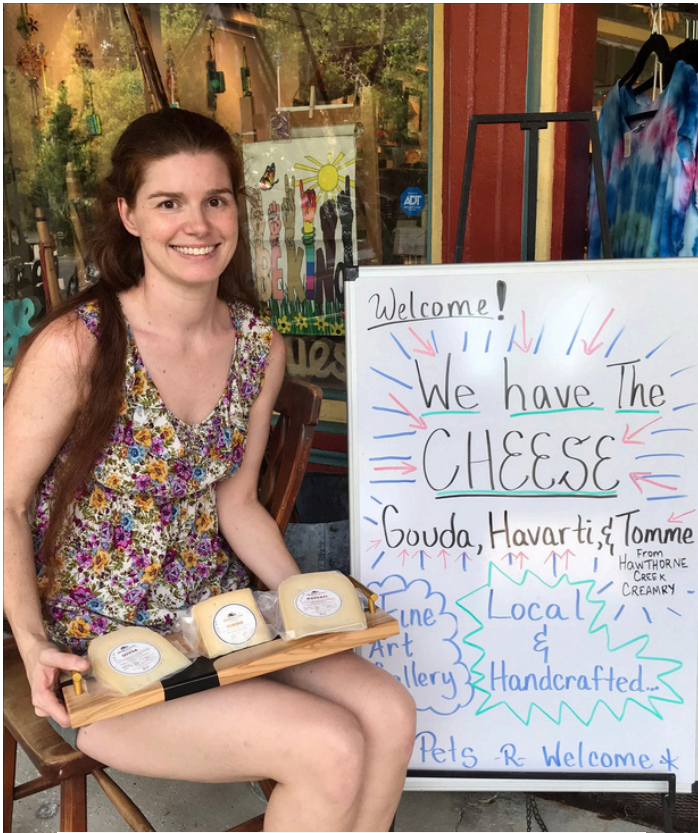 Welcome!
We have The
CHEESE
Gouda, Havarti, & Tomme
From
HAWTHORNE
CREEK
CREAMRY
Fine
Art
Gallery
Local
&
Handcrafted...
Pets -R- Welcome *
ADT
BE KIND